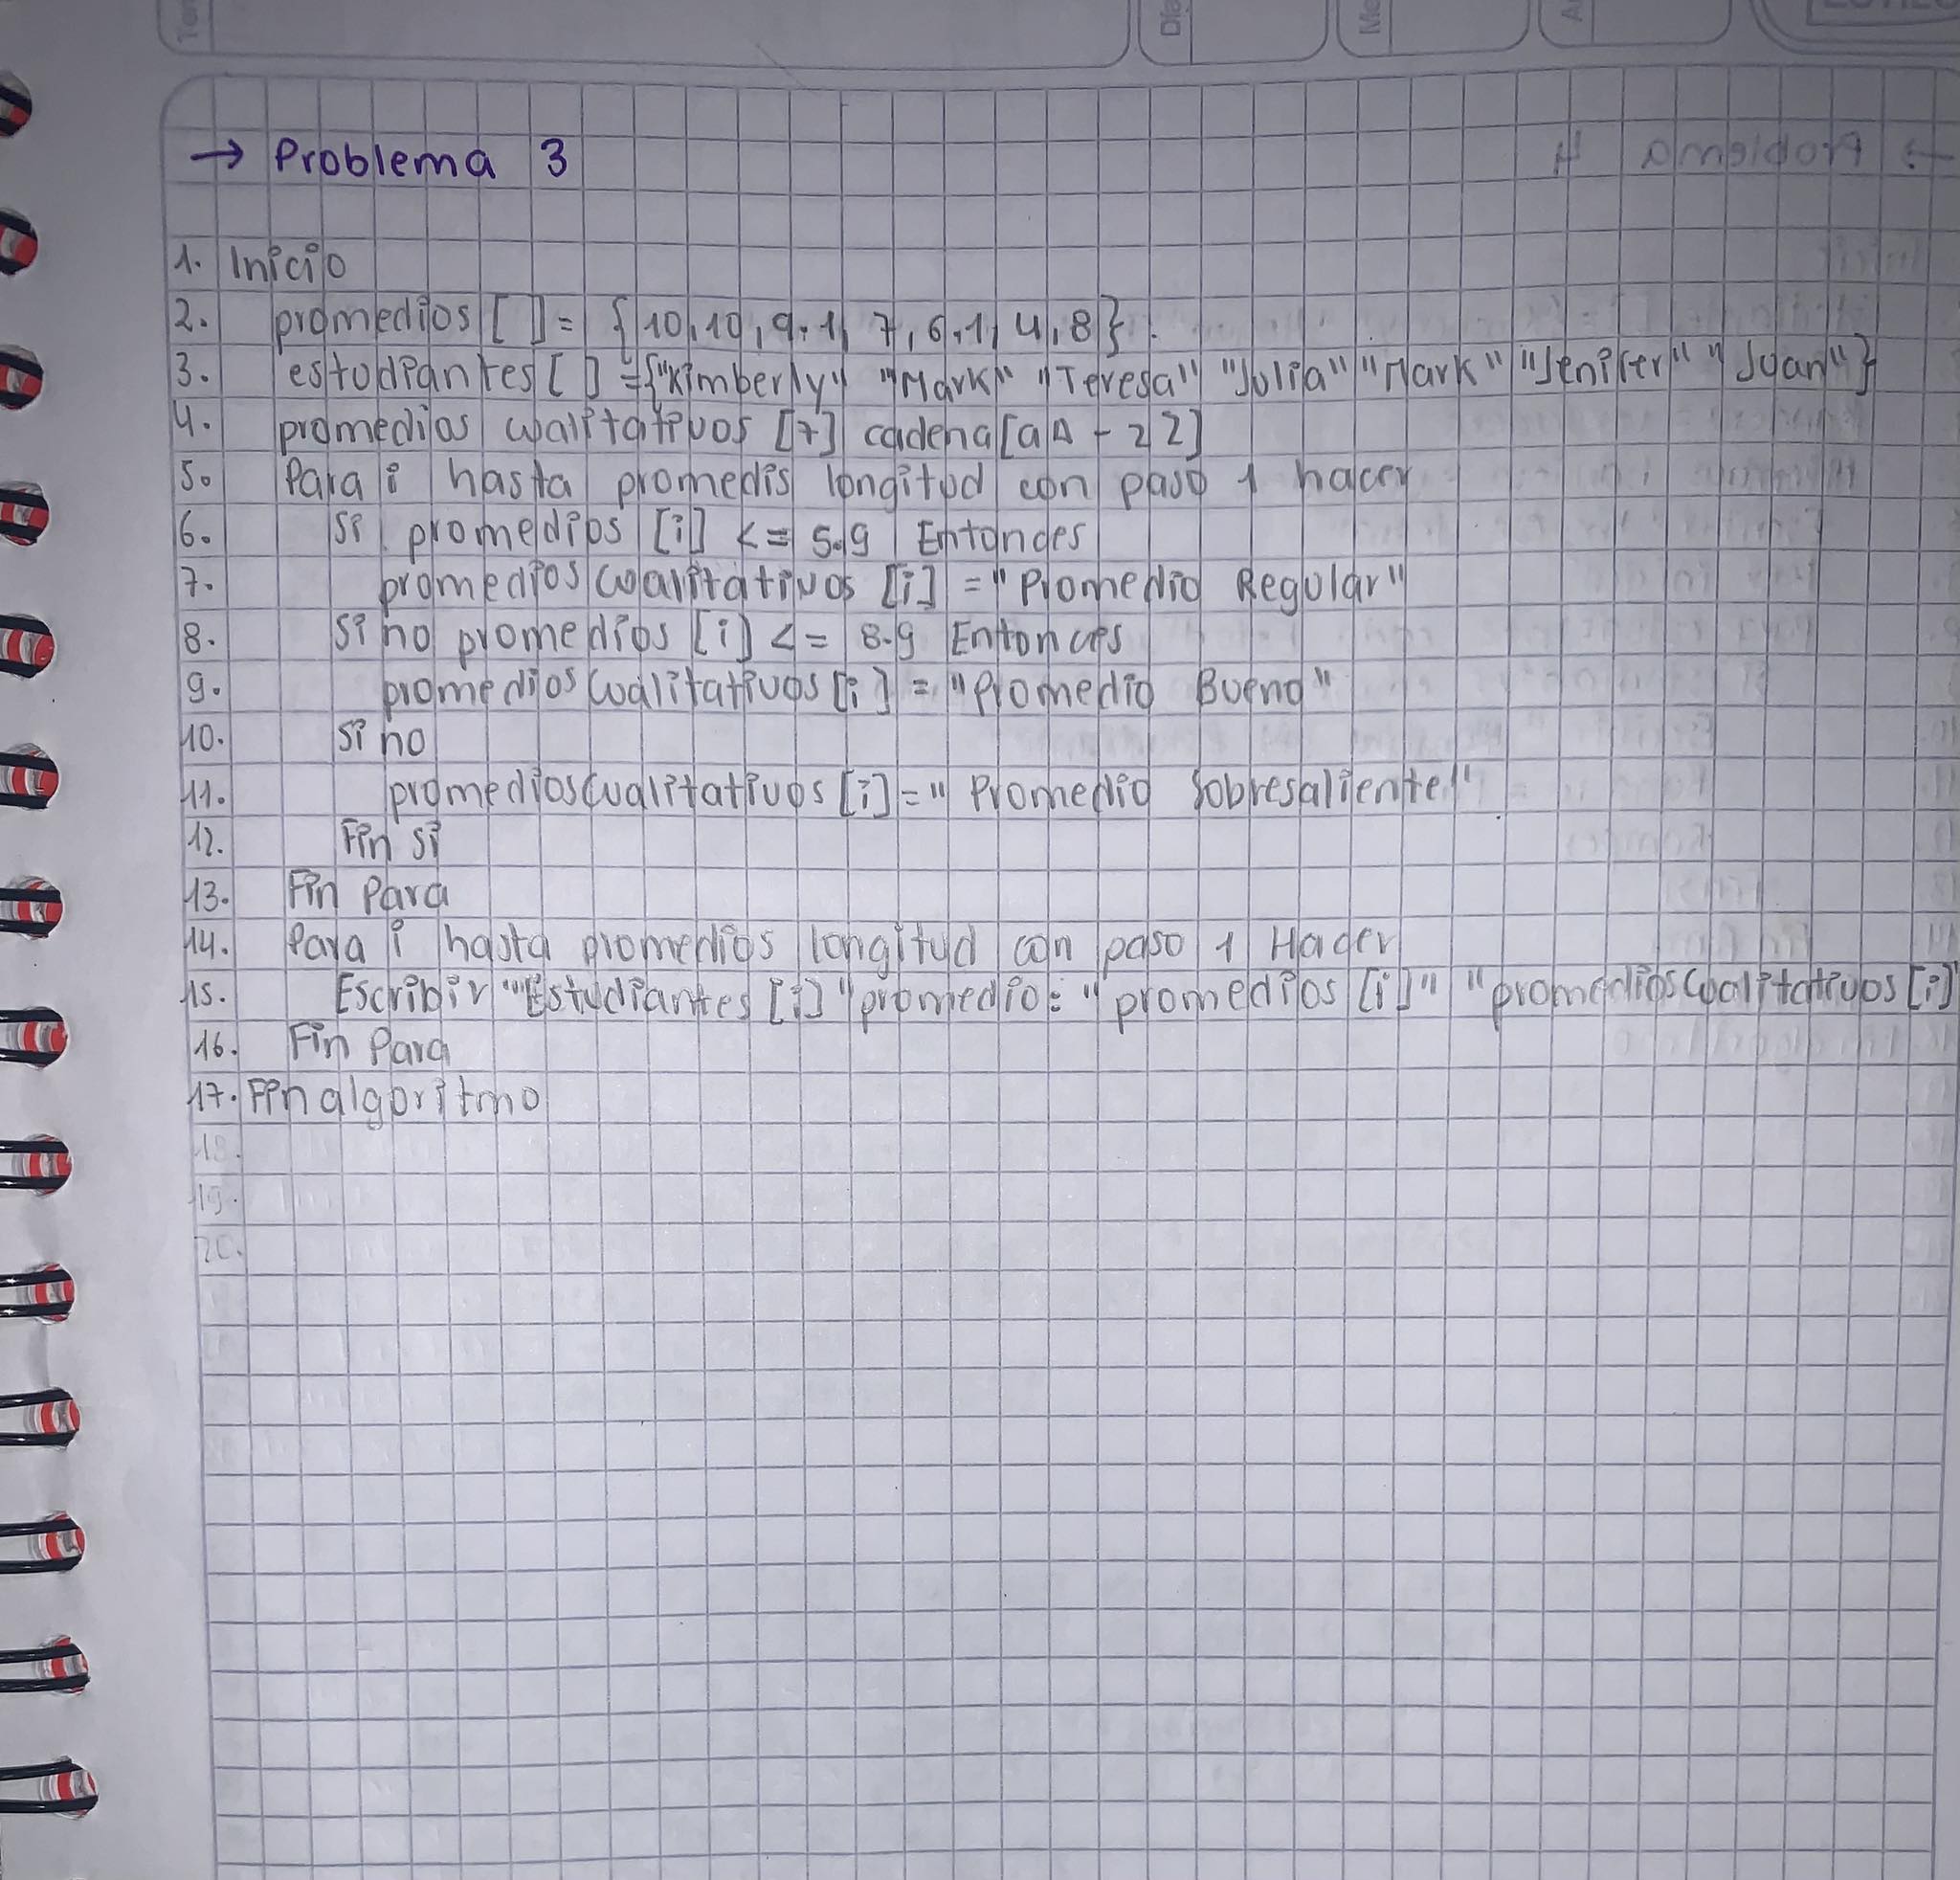 → Problema 3
1. Inicio
2. promedios [ ] = {10,10,9.1,7,6.1,4,8}.
3. estudiantes [ ] = {"Kimberly" "Mark" "Teresa" "Julia" "Mark" "Jenifer" "Juan"}
4. promedios cualitativos [7] cadena [aA - zZ]
5. Para i hasta promedis longitud con paso 1 hacer
6. Si promedios [i] <= 5.9 Entonces
7. promedios cualitativos [i] = "Promedio Regular"
8. Si no promedios [i] <= 8.9 Entonces
9. promedios cualitativos [i] = "Promedio Bueno"
10. Si no
11. promedioscualitativos [i] = "Promedio Sobresaliente"
12. Fin si
13. Fin Para
14. Para i hasta promedios longitud con paso 1 Hacer
15. Escribir "Estudiantes [i] "promedio: " promedios [i]" "promedioscualitativos [i]
16. Fin Para
17. Fin algoritmo
18.
19.
20.